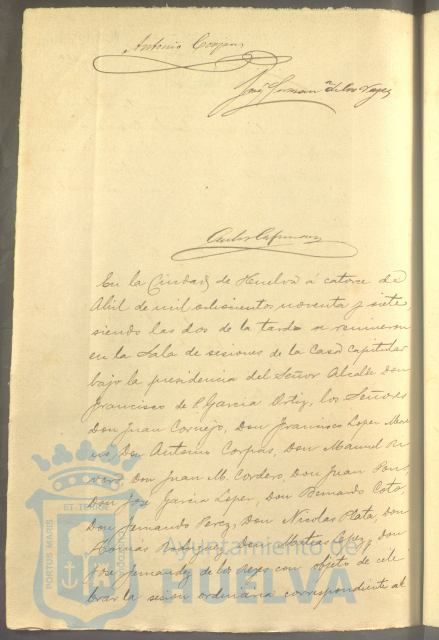 Antonio Corpas
José Fernan.z de los Reyes
En la Ciudad de Huelva á catorce de
Abril de mil ochocientos noventa y siete,
siendo las dos de la tarde se reunieron
en la Sala de sesiones de la Casa capitular
bajo la presidencia del Señor Alcalde don
Francisco de P. García Ortiz, los Señores
Don Juan Cornejo, Don Francisco Lopez
Don Antonio Corpas, Don Manuel Ri
vero, Don Juan M. Cordero, Don Juan Pons,
Don José Garcia Lopez, Don Bernardo Coto,
Don Fernando Perez, Don Nicolas Plata, don
Vazquez, Don Matias Lopez y Don
José Fernandez de los Reyes con objeto de cele
brar la sesion ordinaria correspondiente al
PORTUS MARIS
ET TERRAE
Ayuntamiento de
HUELVA